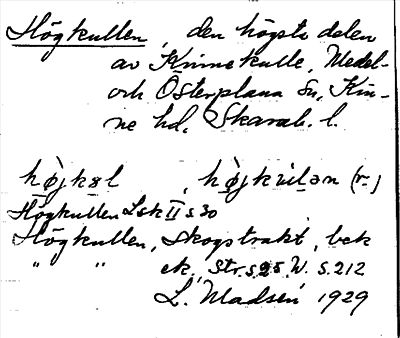 Högkullen, den högste delen
av Kinnekulle, Medel-
och Österplana sn, Kin-
ne hd, Skarab. l.
hø̀jkɵl, hø̀jkɵlən (r.)
Högkullen Lsk II s 30
Högkullen, skogstrakt, bek
" " ek. Str. s. 25. W. s. 212
L. Madsén 1929